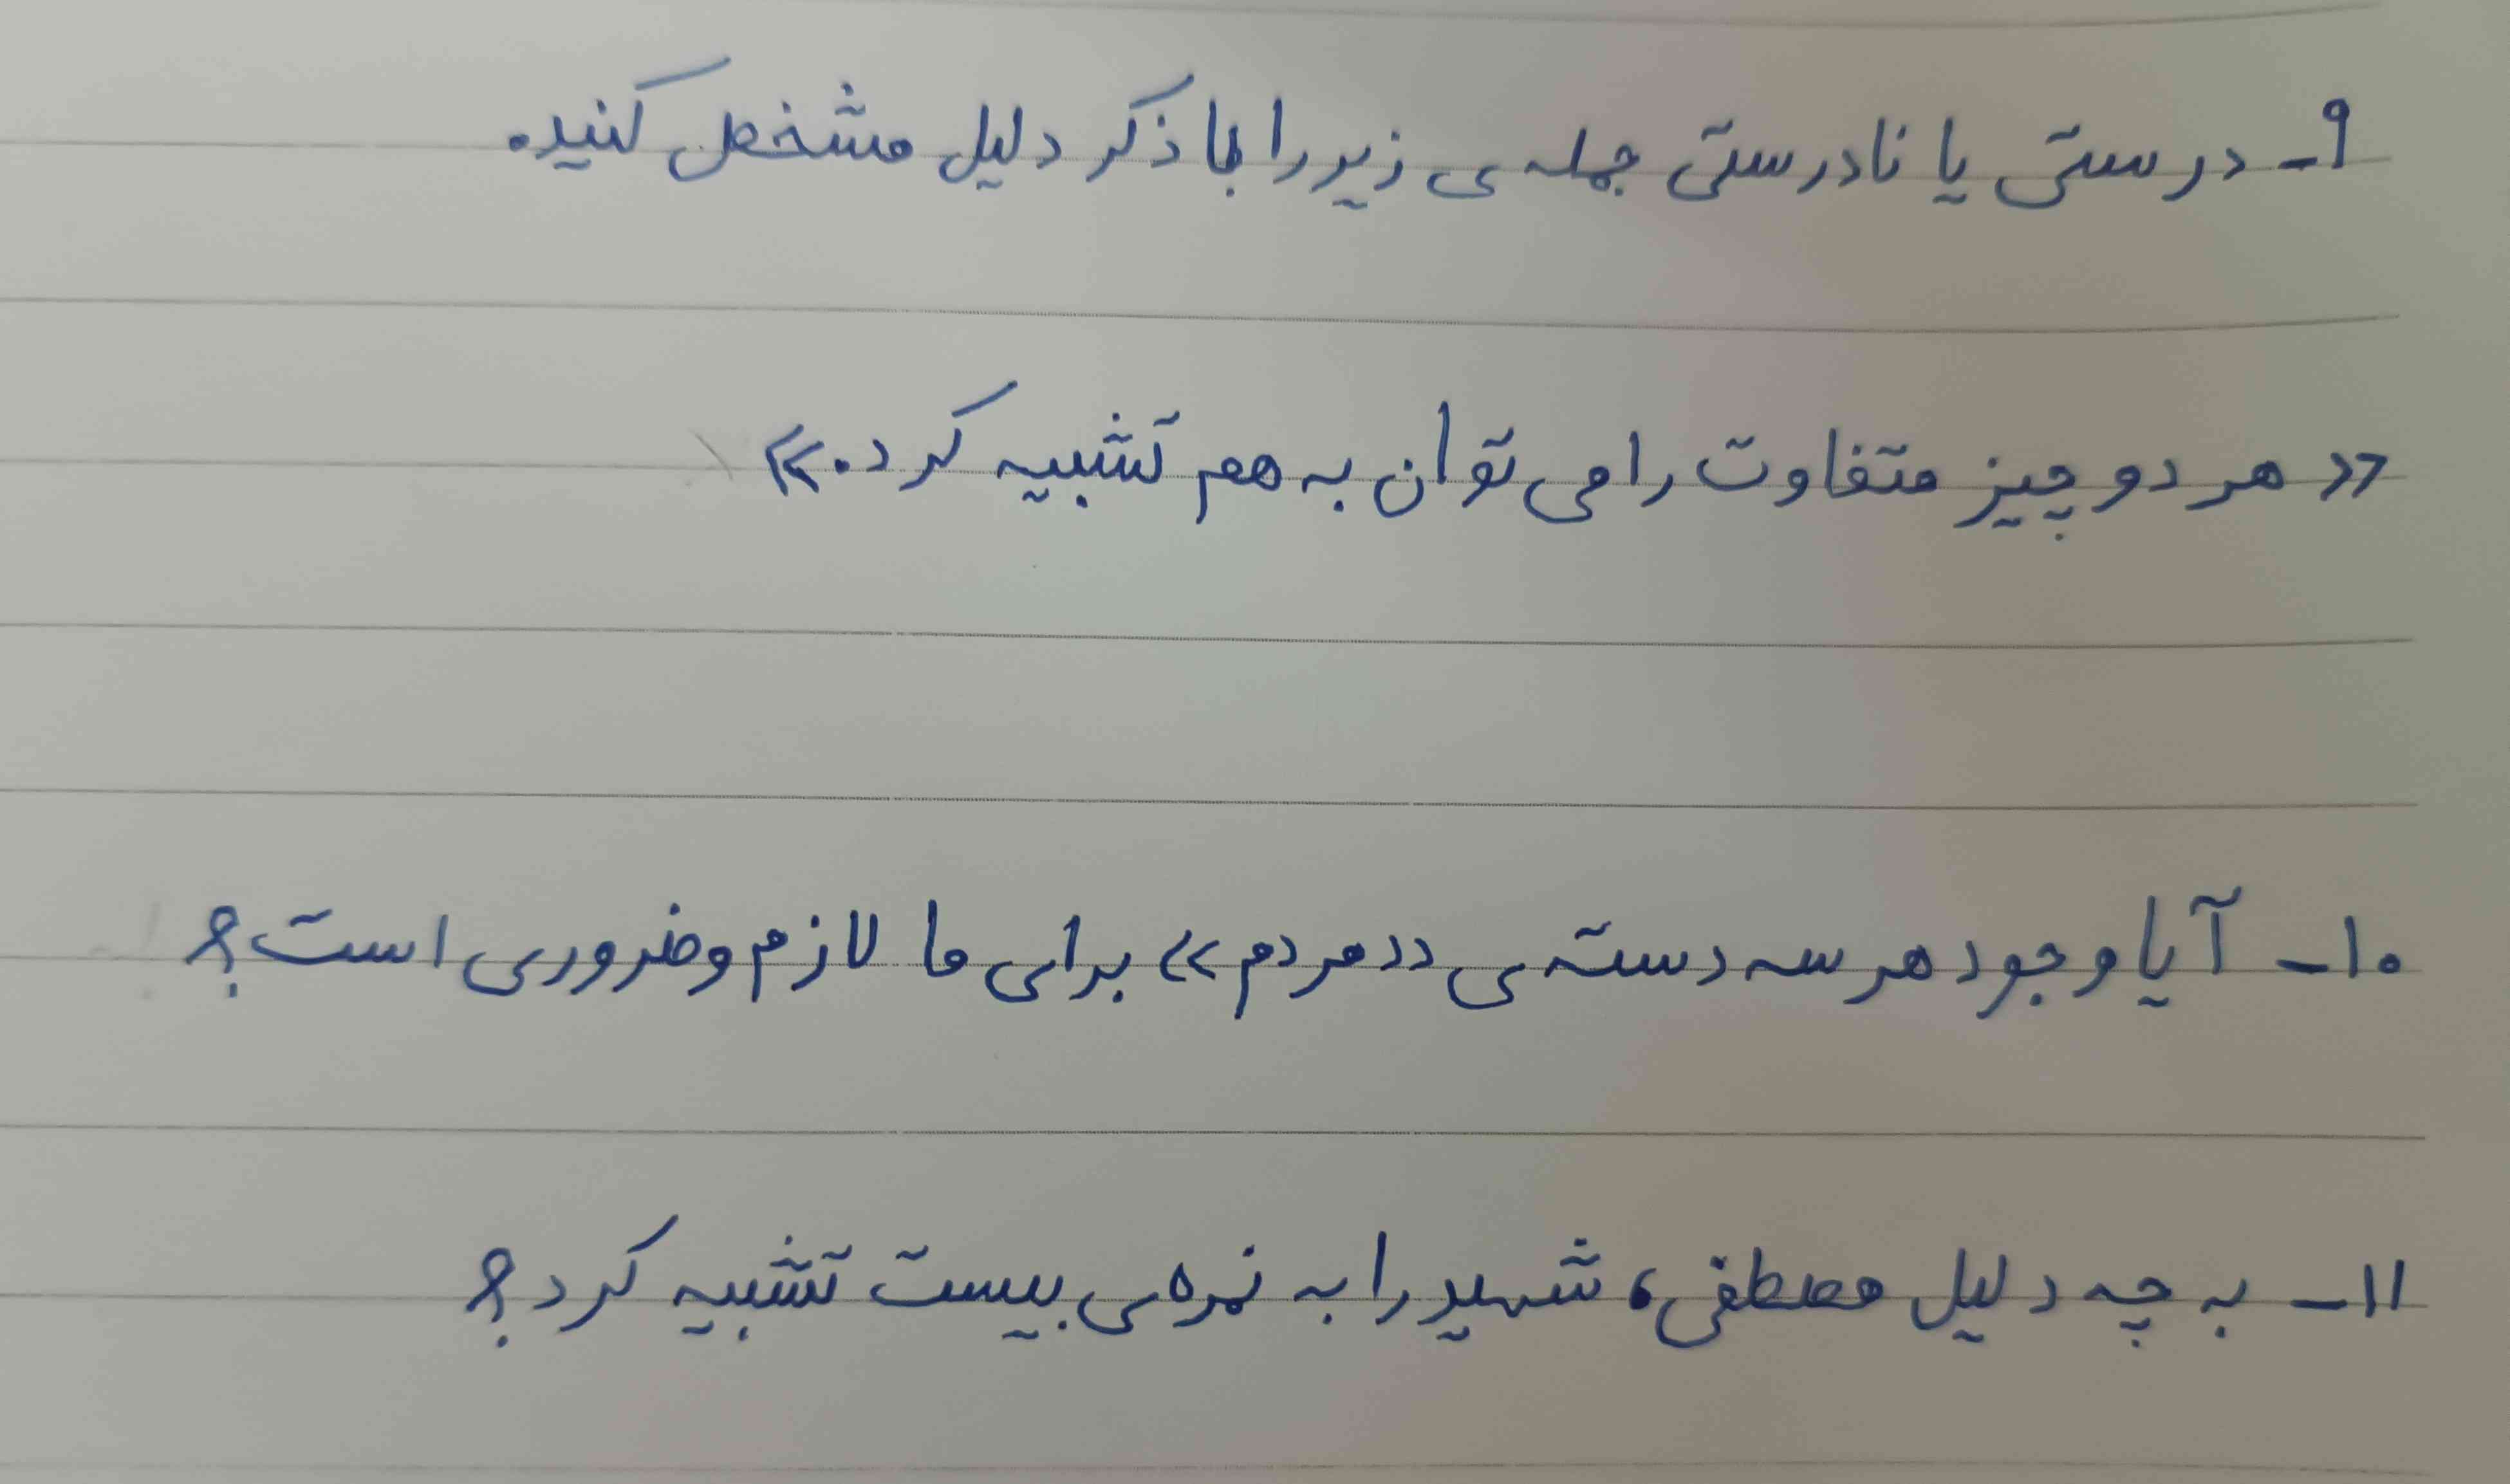 ۹- درستی یا نادرستی جمله ی زیر را با ذکر دلیل مشخص کنید.
«هر دو چیز متفاوت را می توان به هم تشبیه کرد.»
۱۰- آیا وجود هر سه دسته ی «مردم» برای ما لازم و ضروری است؟
۱۱- به چه دلیل مصطفی، شهید را به نمره ی بیست تشبیه کرد؟